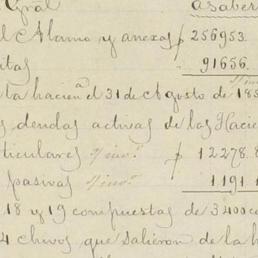 Gral a saber
l Alamo y anexas $ 256953.
itas 91656.
ta hacien.ª el 31 de Agosto de 185
s deudas activas de las Hacie
ticulares $ 12278.8
pasivas 1191.1
18 y 19 compuestas de 3400 c
4 chivos, que salieron de la h